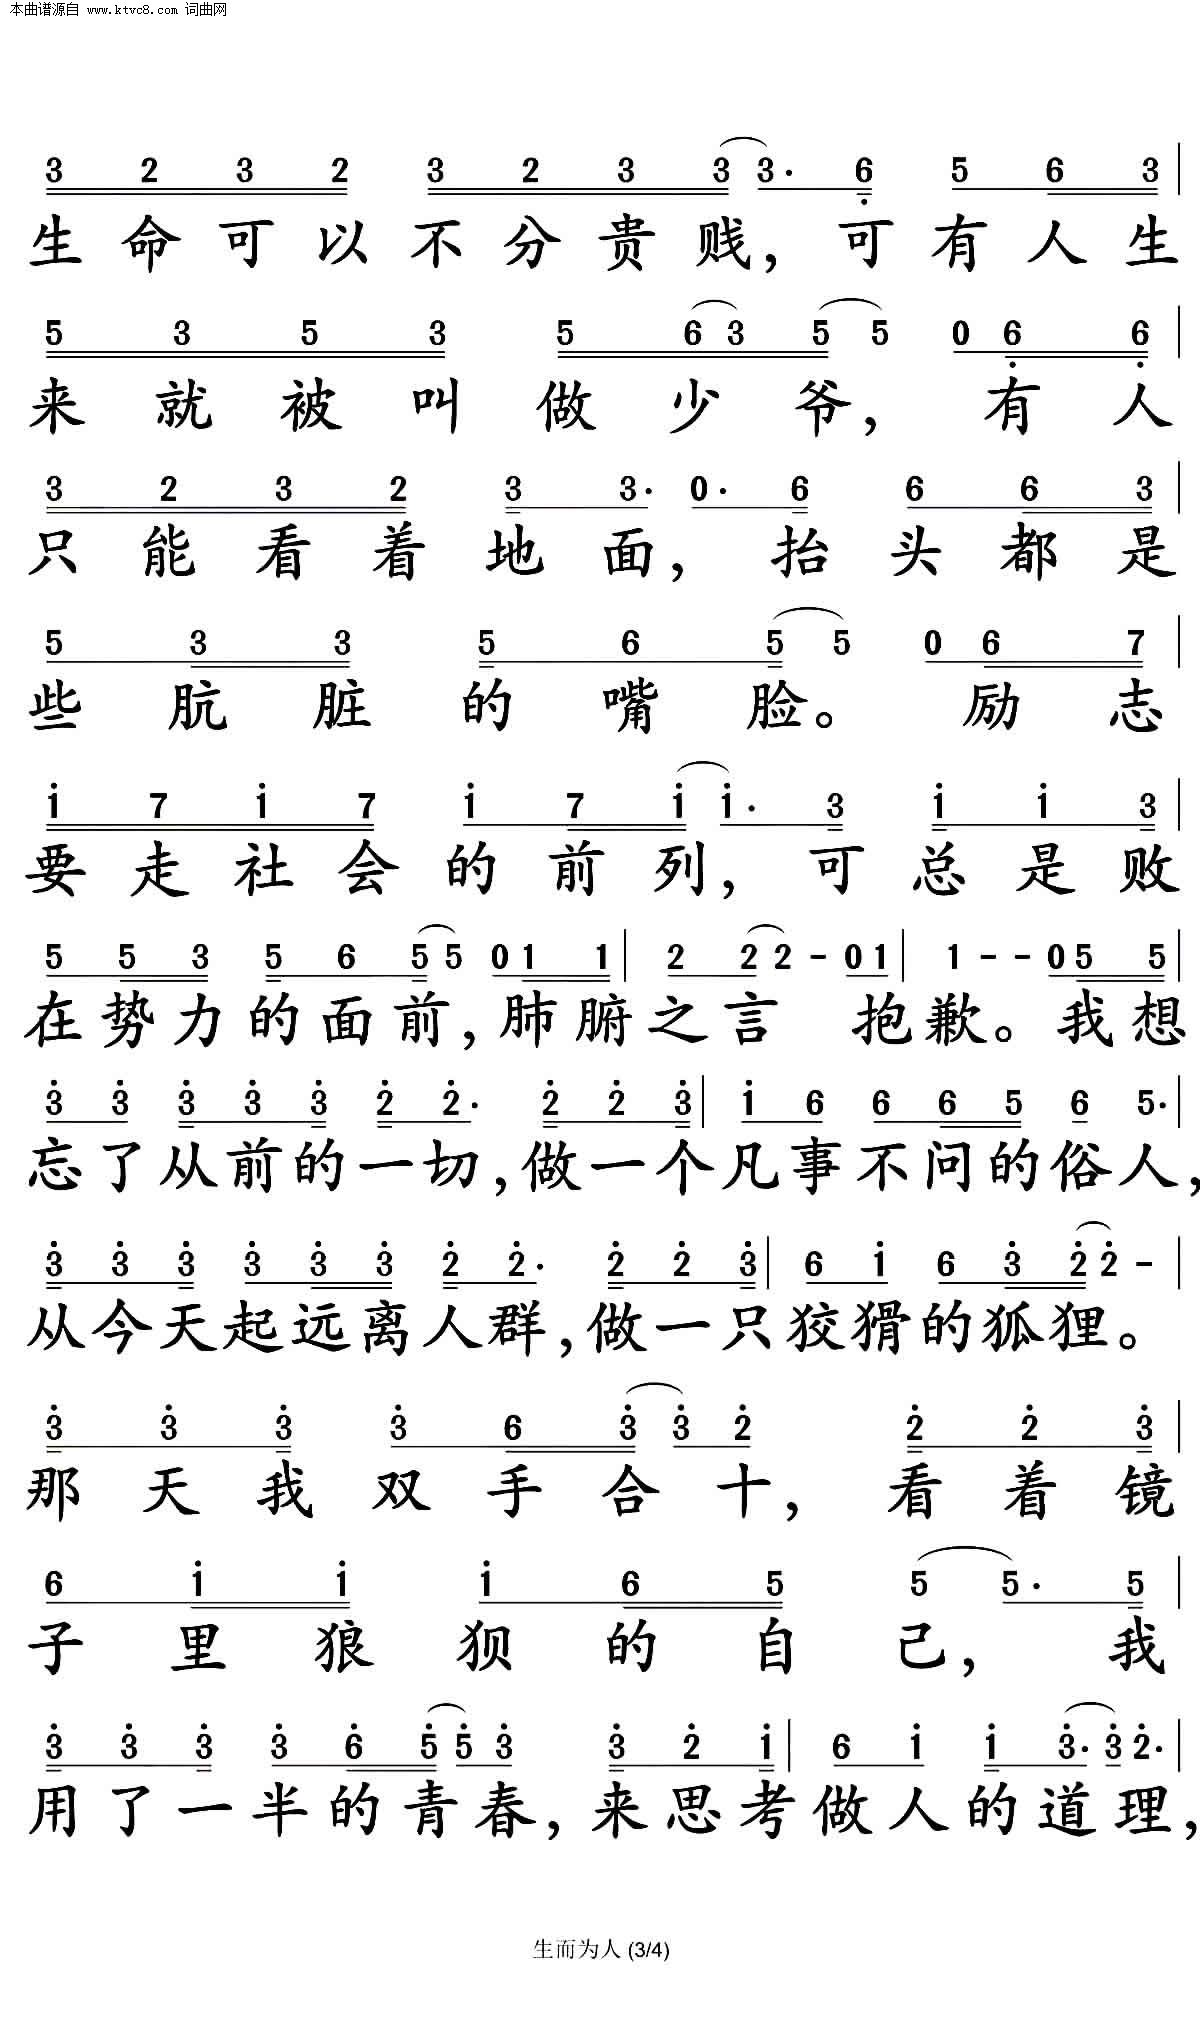 本曲谱源自 www.ktvc8.com 词曲网
3 2 3 2 3 2 3 3 3· 6 5 6 3
生命可以不分贵贱，可有人生
5 3 5 3 5 6 3 5 5 0 6 6
来就被叫做少爷，有人
3 2 3 2 3 3· 0· 6 6 6 3
只能看着地面，抬头都是
5 3 3 5 6 5 5 0 6 7
些肮脏的嘴脸。励志
1 7 1 7 1 7 1 1· 3 1 1 3
要走社会的前列，可总是败
5 5 3 5 6 5 5 0 1 1 | 2 2 2 - 0 1 | 1 - - 0 5 5
在势力的面前，肺腑之言 抱歉。我想
3 3 3 3 3 2 2· 2 2 3 | 1 6 6 6 5 6 5·
忘了从前的一切，做一个凡事不问的俗人，
3 3 3 3 3 3 2 2· 2 2 3 | 6 1 6 3 2 2 -
从今天起远离人群，做一只狡猾的狐狸。
3 3 3 3 6 3 3 2 2 2 3
那天我双手合十，看着镜
6 1 1 1 6 5 5 5· 5
子里狼狈的自己，我
3 3 3 3 6 5 5 3 3 2 1 | 6 1 1 3· 3 2·
用了一半的青春，来思考做人的道理，
生而为人 (3/4)